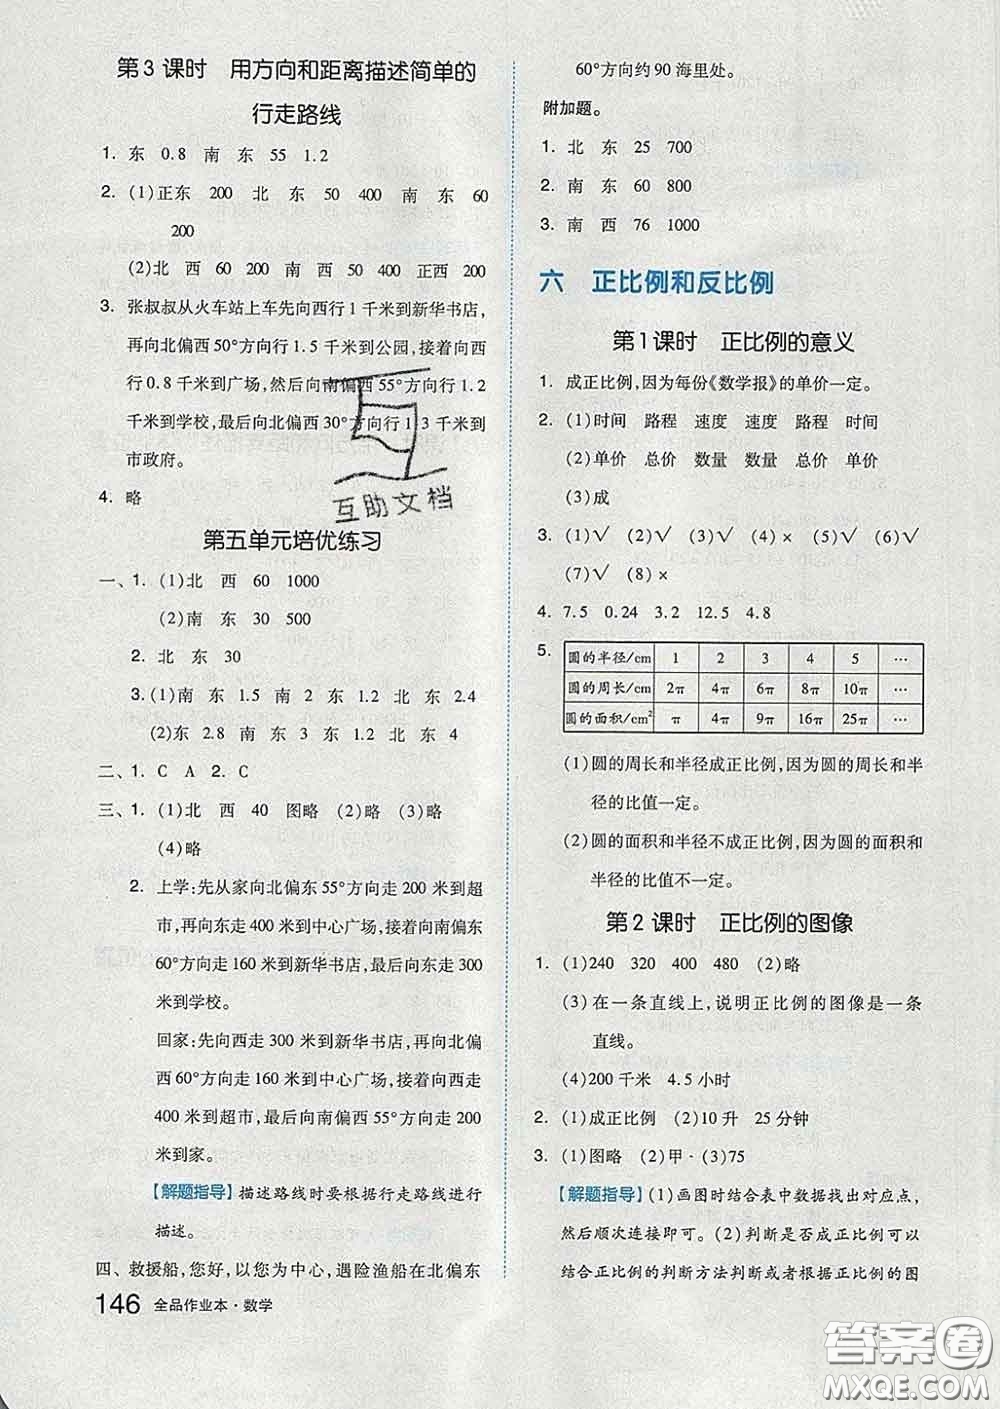 第3课时　用方向和距离描述简单的
行走路线
1. 东　0.8　南　东　55　1.2
2. (1)正东　200　北　东　50　400　南　东　60
200
(2)北　西　60　200　南　西　50　400　正西　200
3. 张叔叔从火车站上车先向西行1千米到新华书店，
再向北偏西50°方向行1.5千米到公园，接着向西
行0.8千米到广场，然后向南偏西55°方向行1.2
千米到学校，最后向北偏西30°方向行1.3千米到
市政府。
4. 略
第五单元培优练习
一、1. (1)北　西　60　1000
(2)南　东　30　500
2. 北　东　30
3. (1)南　东　1.5　南　2　东　1.2　北　东　2.4
(2)东　2.8　南　东　3　东　1.2　北　东　4
二、1. C　A　2. C
三、1. (1)北　西　40　图略　(2)略　(3)略
(4)略
2. 上学：先从家向北偏东55°方向走200米到超
市，再向东走400米到中心广场，接着向南偏东
60°方向走160米到新华书店，最后向东走300
米到学校。
回家：先向西走300米到新华书店，再向北偏
西60°方向走160米到中心广场，接着向西走
400米到超市，最后向南偏西55°方向走200
米到家。
【解题指导】描述路线时要根据行走路线进行
描述。
四、救援船，您好，以您为中心，遇险渔船在北偏东
146　全品作业本·数学
60°方向约90海里处。
附加题。
1. 北　东　25　700
2. 南　东　60　800
3. 南　西　76　1000
六　正比例和反比例
第1课时　正比例的意义
1. 成正比例，因为每份《数学报》的单价一定。
2. (1)时间　路程　速度　速度　路程　时间
(2)单价　总价　数量　数量　总价　单价
(3)成
3. (1)√　(2)√　(3)√　(4)×　(5)√　(6)√
(7)√　(8)×
4. 7.5　0.24　3.2　12.5　4.8
5. 圆的半径/cm　1　2　3　4　5　…
圆的周长/cm　2π　4π　6π　8π　10π　…
圆的面积/cm²　π　4π　9π　16π　25π　…
(1)圆的周长和半径成正比例，因为圆的周长和半
径的比值一定。
(2)圆的面积和半径不成正比例，因为圆的面积和
半径的比值不一定。
第2课时　正比例的图像
1. (1)240　320　400　480　(2)略
(3)在一条直线上，说明正比例的图像是一条
直线。
(4)200千米　4.5小时
2. (1)成正比例　(2)10升　25分钟
3. (1)图略　(2)甲·(3)75
【解题指导】(1)画图时结合表中数据找出对应点，
然后顺次连接即可。(2)判断是否成正比例可以
结合正比例的判断方法判断或者根据正比例的图
互助文档
答案圈
MXQE.COM